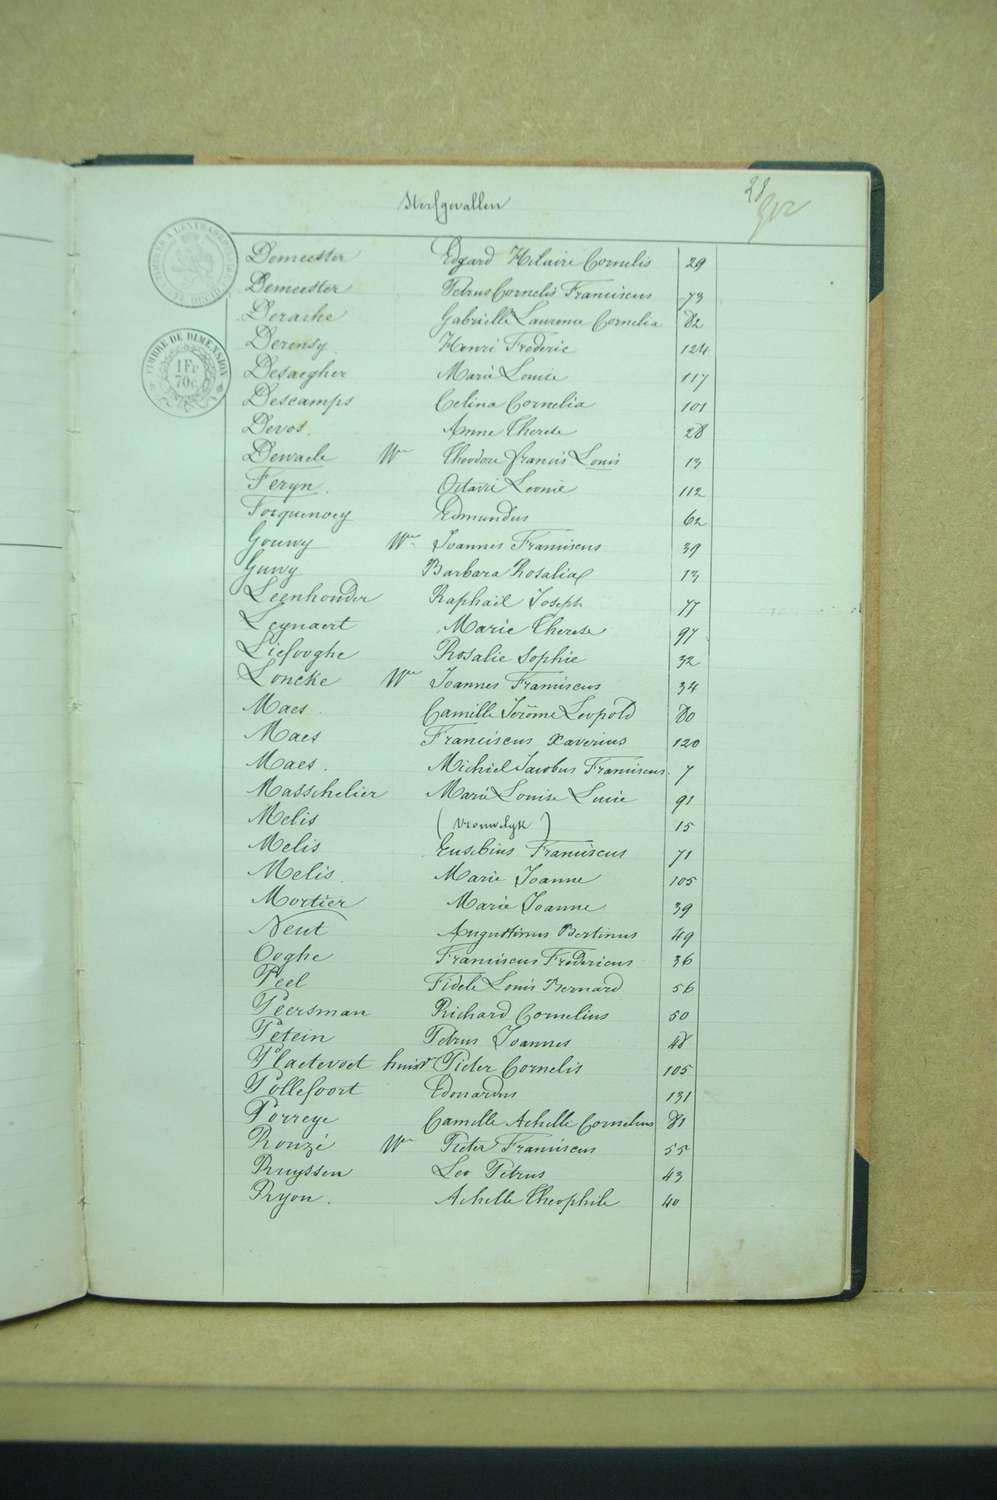 Sterfgevallen
28
TIMBRE DE DIMENSION
1 Fr
70 c
Demeester Edgard Hilaire Cornelis 29
Demeester Petrus Cornelis Franciscus 73
Derache Gabrielle Laurence Cornelia 82
Derensy. Henri Frederic 124
Desaegher Marie Louise 117
Descamps Celina Cornelia 101
Devos. Anne Therese 28
Dewaele We Theodore francis Louis 13
Feryn. Octavie Leonie 112
Focquenoey Edmundus 62
Gouwy We Joannes Franciscus 39
Guwy Barbara Rosalia 13
Leenhouder Raphaël Joseph 77
Leynaert Marie Therese 97
Liefooghe Rosalie Sophie 32
Loncke We Joannes Franciscus 34
Maes Camille Jerôme Leopold 80
Maes Franciscus Xaverius 120
Maes. Michiel Jacobus Franciscus 7
Masschelier Marie Louise Lucie 91
Melis (Vrouwelyk) 15
Melis Eusebius Franciscus 71
Melis. Marie Joanne 105
Mortier Marie Joanne 39
Neut Augustinus Bertinus 49
Ooghe Franciscus Fredericus 36
Peel Fidele Louis Bernard 56
Peersman Richard Cornelius 50
Petein Petrus Joannes 48
Plaetevoet huisv Pieter Cornelis 105
Pollefoort Edouardus 131
Porreye Camille Achille Cornelius 81
Rouzé We Pieter Franciscus 55
Ruyssen Leo Petrus 43
Ryon. Achille Theophile 40